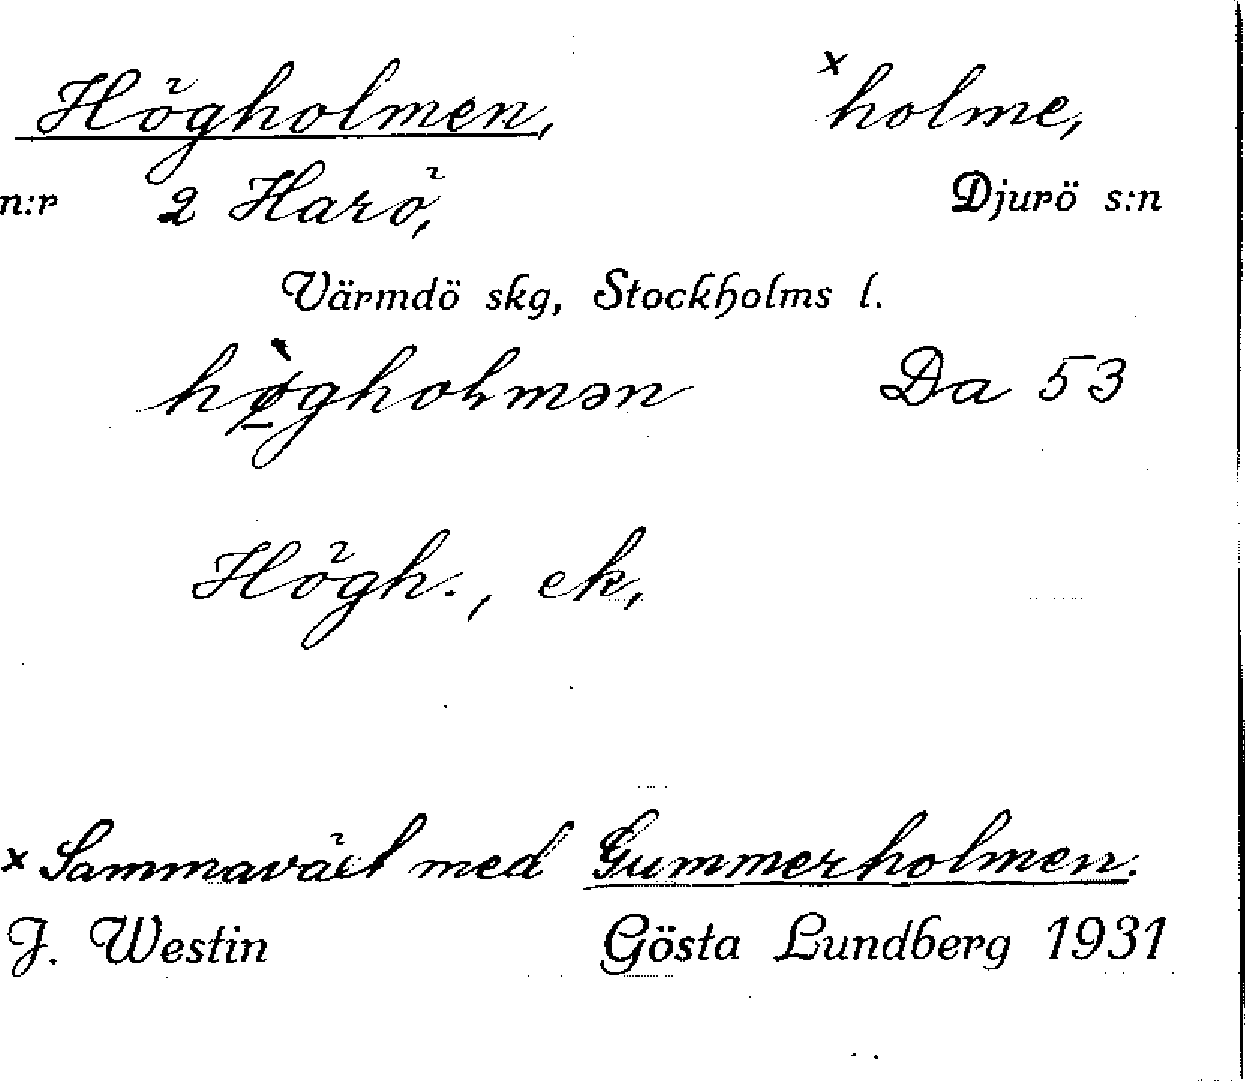 Högholmen, ˣholme,
n:r 2 Harö, Djurö s:n
Värmdö skg, Stockholms l.
hø̀gholmən Da 53
Högh., ek,
x Sammaväxt med Gummerholmen.
J. Westin Gösta Lundberg 1931